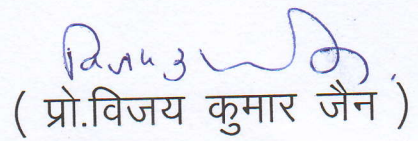 ( प्रो.विजय कुमार जैन )